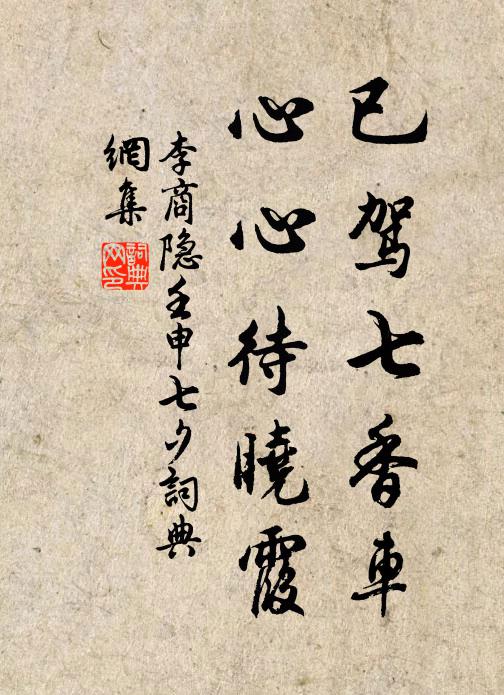 已駕七香車
心心待曉霞
李商隐壬申七夕詞典
網集
詞典
网印